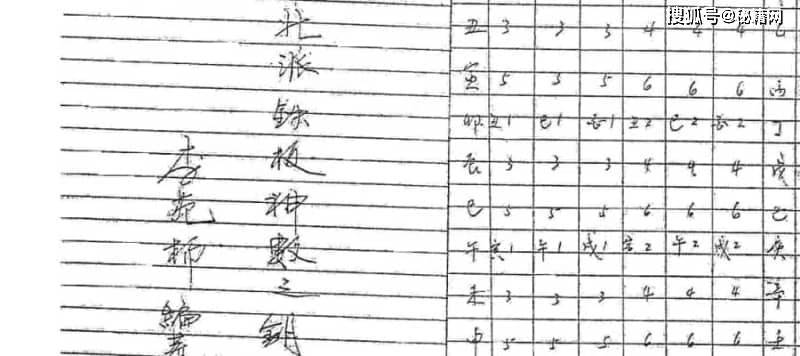 搜狐号@秘籍网
北派铁板神数之钥
李亮柳编著
丑 3 3 3 4 4 4 乙
寅 5 5 5 6 6 6 丙
卯 丑1 巳1 1 丑2 巳2 2 丁
辰 3 3 3 4 4 4 戊
巳 5 5 5 6 6 6 己
午 1 午1 戌1 2 午2 戌2 庚
未 3 3 3 4 4 4 辛
申 5 5 5 6 6 6 壬